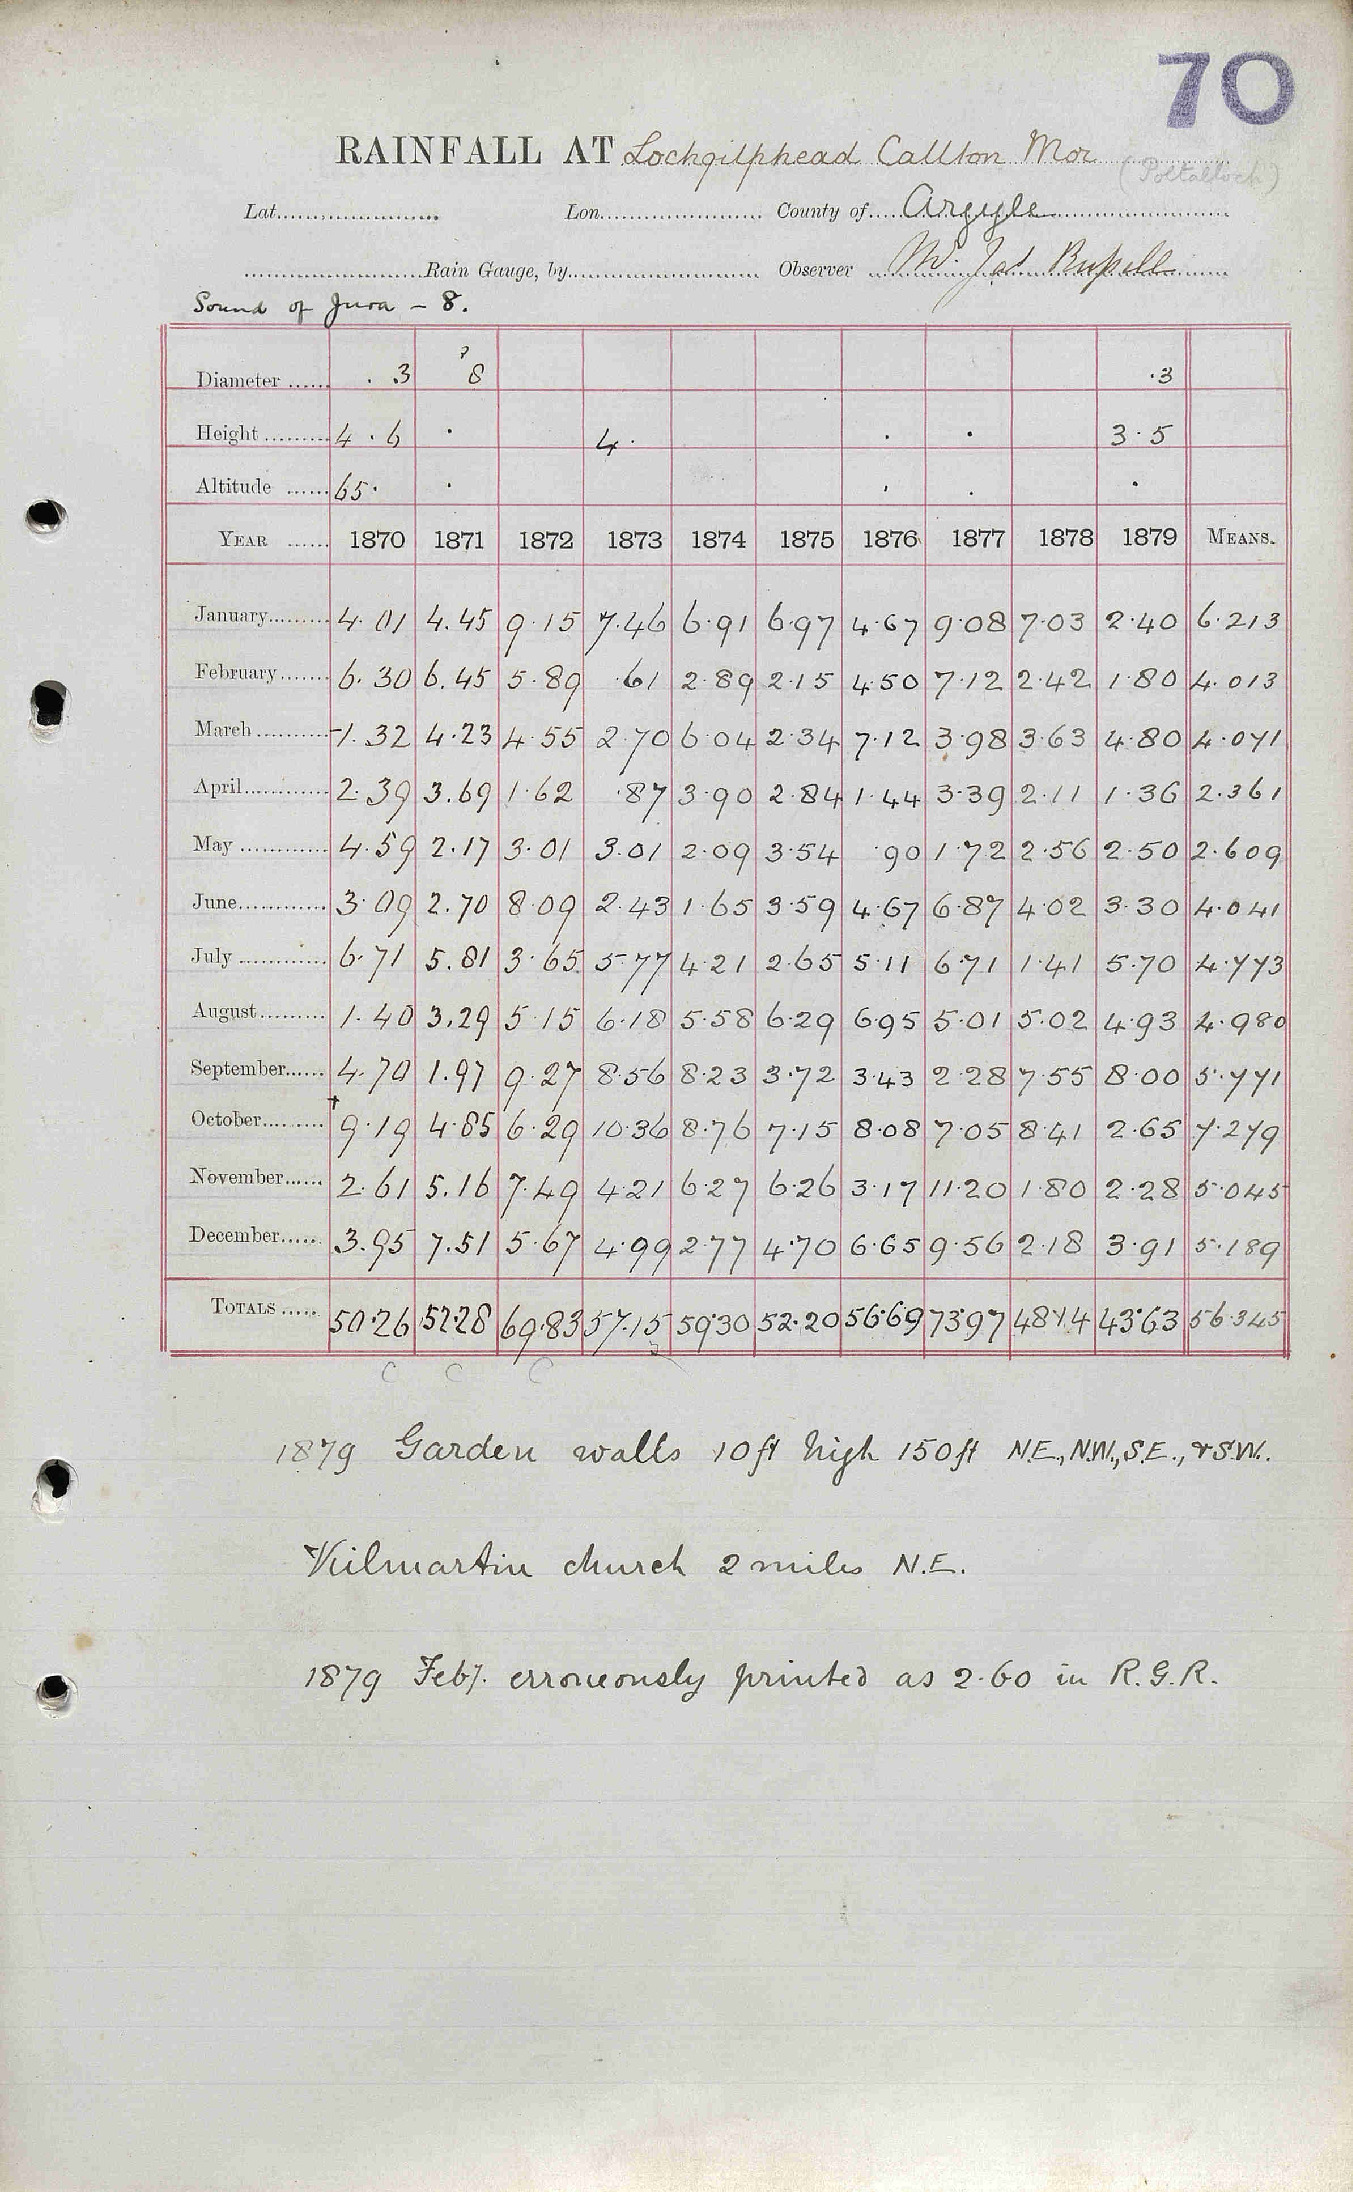 70
RAINFALL AT Lochgilphead Callton Mor
(Poltalloch)
Lat. Lon. County of Argyle
Rain Gauge, by Observer Mr. Jas Russell
Sound of Jura - 8.
Diameter . .3 ? 8 .3
Height 4 . 6 . 4. . . 3.5
Altitude 65. . . . .
YEAR 1870 1871 1872 1873 1874 1875 1876 1877 1878 1879 MEANS.
January 4.01 4.45 9.15 7.46 6.91 6.97 4.67 9.08 7.03 2.40 6.213
February 6.30 6.45 5.89 .61 2.89 2.15 4.50 7.12 2.42 1.80 4.013
March 1.32 4.23 4.55 2.70 6.04 2.34 7.12 3.98 3.63 4.80 4.071
April 2.39 3.69 1.62 .87 3.90 2.84 1.44 3.39 2.11 1.36 2.361
May 4.59 2.17 3.01 3.01 2.09 3.54 .90 1.72 2.56 2.50 2.609
June 3.09 2.70 8.09 2.43 1.65 3.59 4.67 6.87 4.02 3.30 4.041
July 6.71 5.81 3.65 5.77 4.21 2.65 5.11 6.71 1.41 5.70 4.773
August 1.40 3.29 5.15 6.18 5.58 6.29 6.95 5.01 5.02 4.93 4.980
September 4.70 1.97 9.27 8.56 8.23 3.72 3.43 2.28 7.55 8.00 5.771
October † 9.19 4.85 6.29 10.36 8.76 7.15 8.08 7.05 8.41 2.65 7.279
November 2.61 5.16 7.49 4.21 6.27 6.26 3.17 11.20 1.80 2.28 5.045
December 3.95 7.51 5.67 4.99 2.77 4.70 6.65 9.56 2.18 3.91 5.189
TOTALS 50.26 52.28 69.83 57.15 59.30 52.20 56.69 73.97 48.14 43.63 56.345
C C C
1879 Garden walls 10 ft high 150 ft N.E., N.W., S.E., & S.W.
Kilmartin church 2 miles N.E.
1879 Feby. erroneously printed as 2.60 in R.G.R.